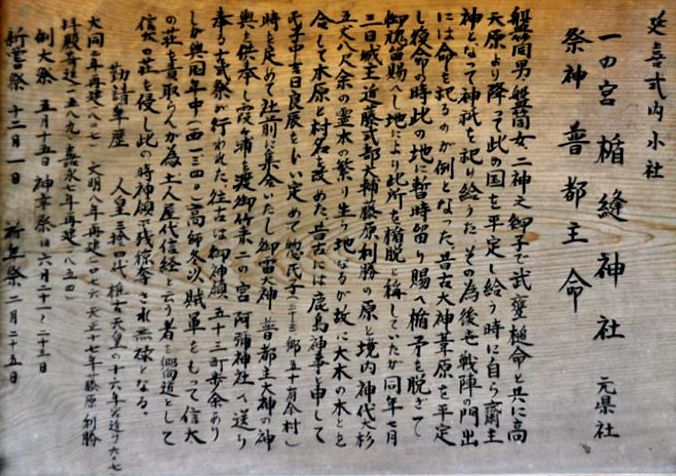 延喜式内小社
一の宮 楯縫神社 元県社
祭神 普都主命
盤筒男 盤筒女 二神之御子で武甕槌命と共に高
天原より降って此の国を平定し給う時に自ら斎主
神となって神祇を祀り給うた その為後世戦陣の門出
には命を祀るのが例となった、昔古大神葦原を平定
し復命の時此の地に暫時留り賜へ楯矛を脱ぎて
御魂留賜へし地により此所を楯脱と称していたが同年七月
三日城主近藤式部大輔藤原利勝の 境内神代大杉
五丈八尺余の霊木の繁り生ら地なるが故に大木の木と
合して木原と村名を改めた、昔古には鹿島神事と申して
氏子中吉日良辰をト い定めて惣氏子(三十三郷五十有余村)
時を定めて社前に集合いたし御雷大神 普都主大神の神
輿を供奉し霞ヶ浦を渡御竹来二の宮阿彌神社へ送り
奉る古式祭が行われた、往古は御神領五十三町歩余あり
しが興国年中(一三四〇)高師冬以賊軍をもって信太
の荘を責取らんが為土人屋代信経と云う者を郷導として
信太の荘を侵し此の時神領を残掠奪され無禄となる、
勧請年歴 人皇三拾四代推古天皇の十六年 六〇七
大同二年再建(八〇七) 文明八年再建(一四七六)天正十七年藤原利勝
拝殿寄進(一五八九)嘉永七年再建(一八五四)
例大祭 五月十五日 神幸祭 六月二十一~二十三日
新嘗祭 十二月一日 祈年祭 二月二十五日